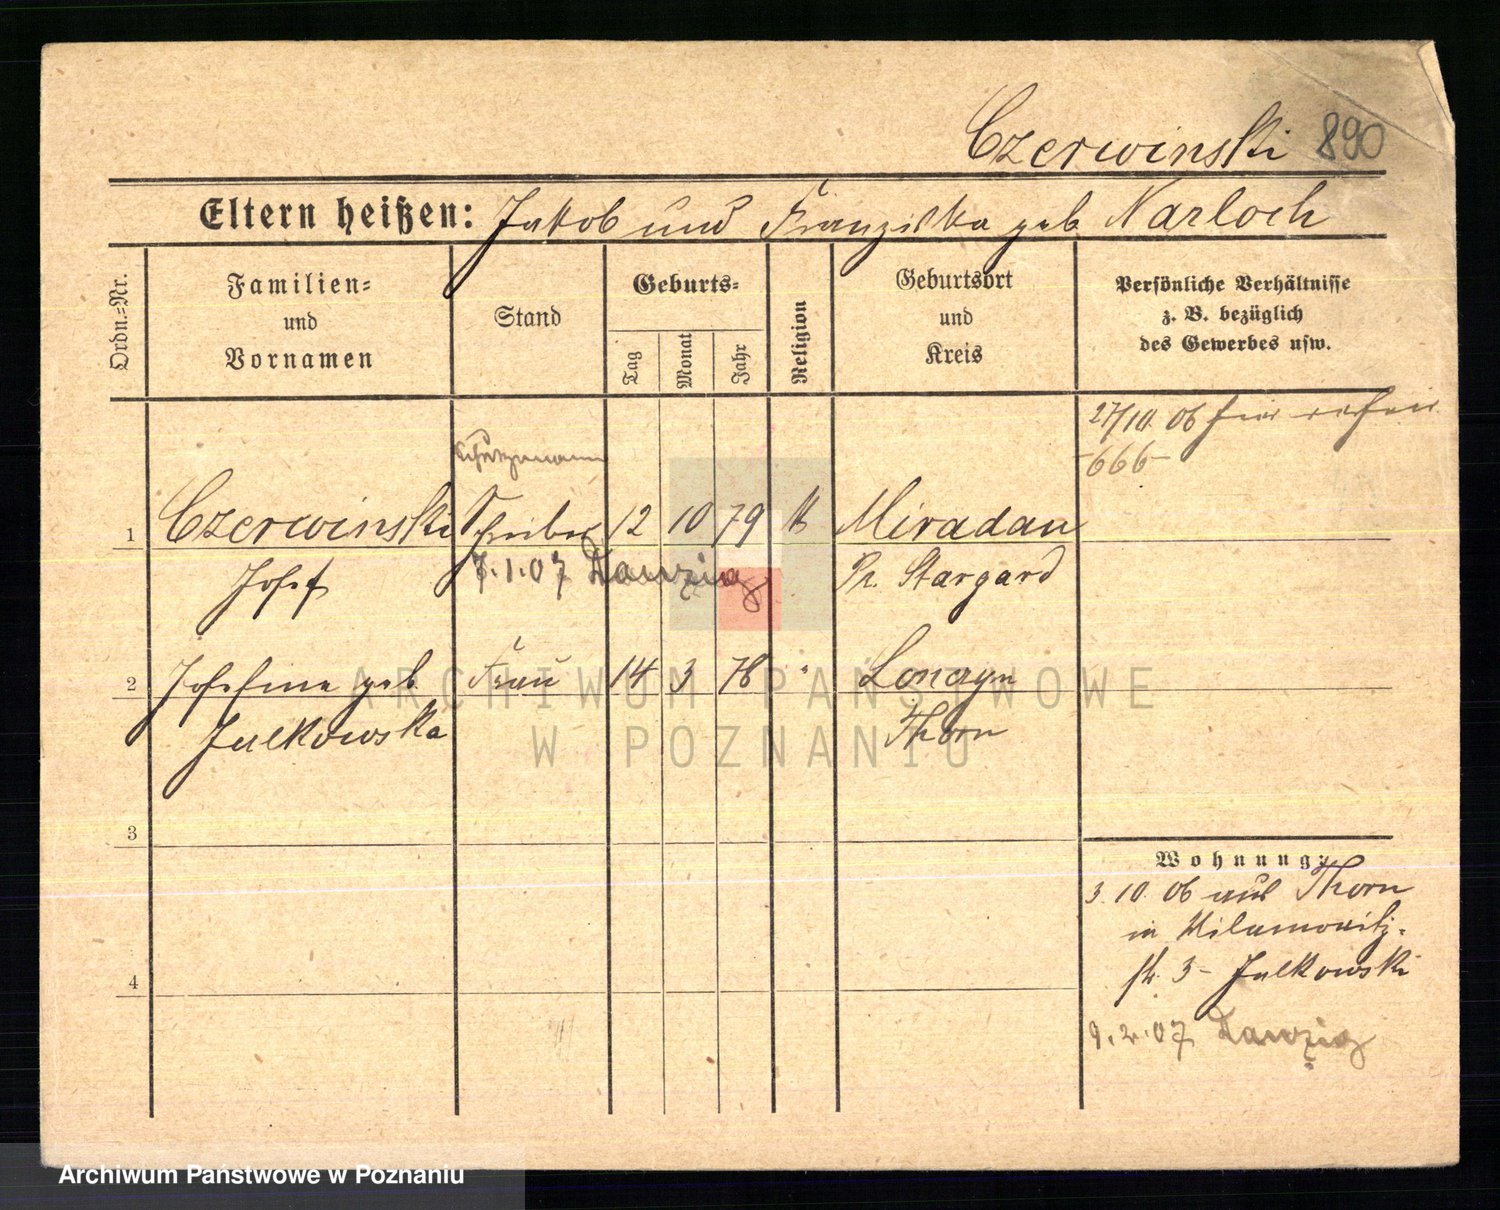 Czerwinski 890
Eltern heißen: Jakob und Franziska geb Narloch
Ordn.=Nr.
Familien=
und
Vornamen
Stand
Geburts=
Tag
Monat
Jahr
Religion
Geburtsort
und
Kreis
Persönliche Verhältnisse
z. B. bezüglich
des Gewerbes usw.
27/10. 06 hier
-666-
Schutzmann
1 Czerwinski Schreiber 12 10 79 k Miradau
Josef 7.1.07 Danzig Pr. Stargard
2 Josefine geb Frau 14 3 78 " Lonczyn
Julkowska Thorn
ARCHIWUM PAŃSTWOWE
W POZNANIU
3
4
Wohnung:
3. 10. 06 aus Thorn
in Wilamowitz-
str. 3- Julkowski
9.2.07 Danzig
Archiwum Państwowe w Poznaniu